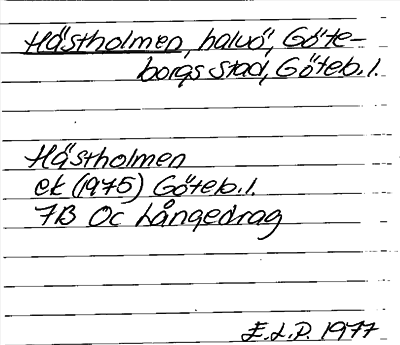 Hästholmen, halvö, Göte-
borgs stad, Göteb. l.
Hästholmen
ek (1975) Göteb. l.
7B Oc Långedrag
E.L.P. 1977